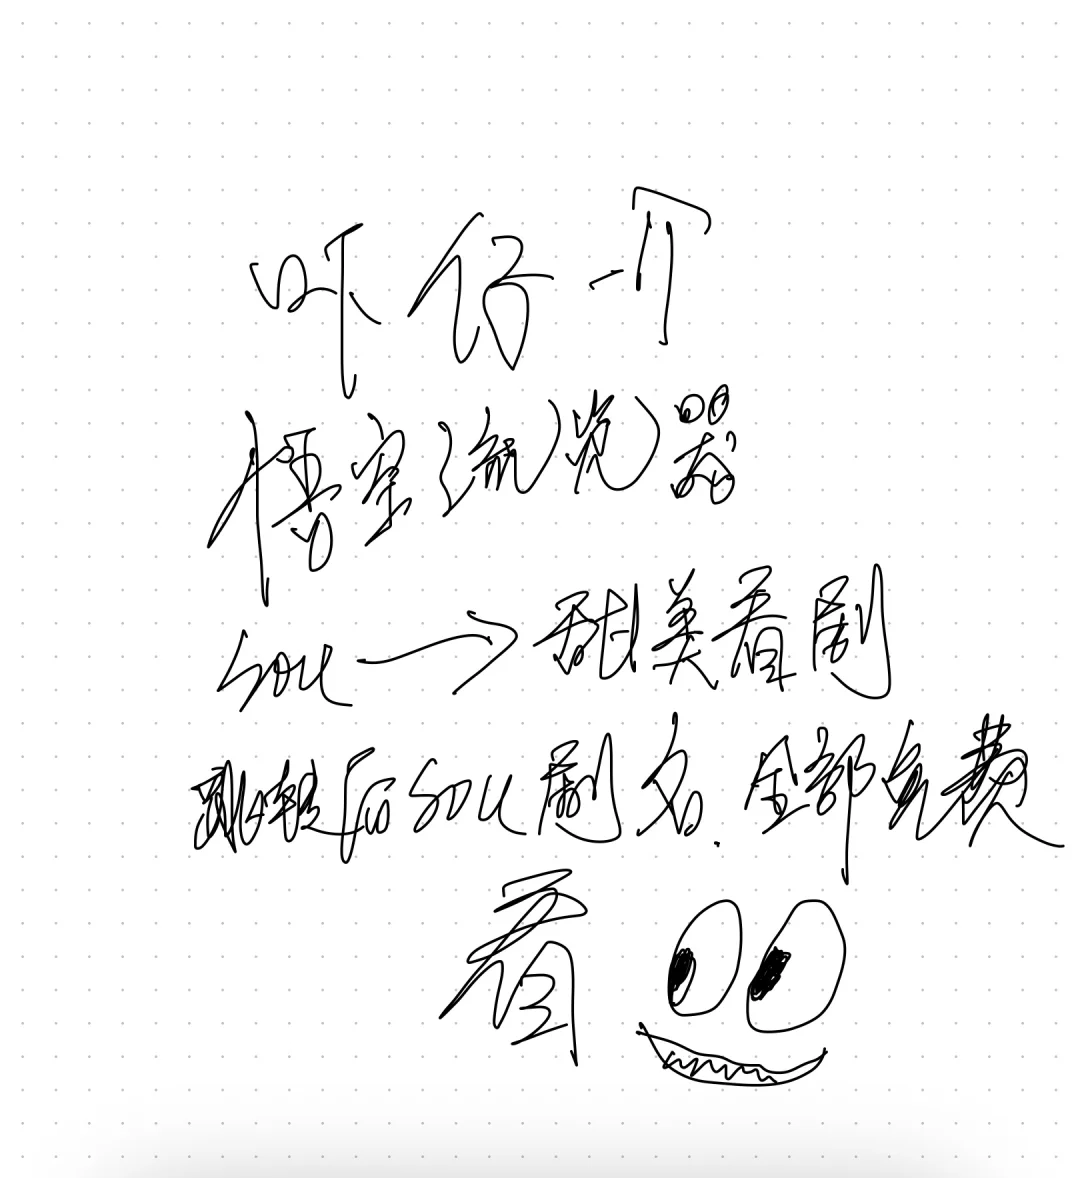 吓仔一个
悟空浏览器
sou→甜美看剧
跳转后sou剧名.全部免费
看